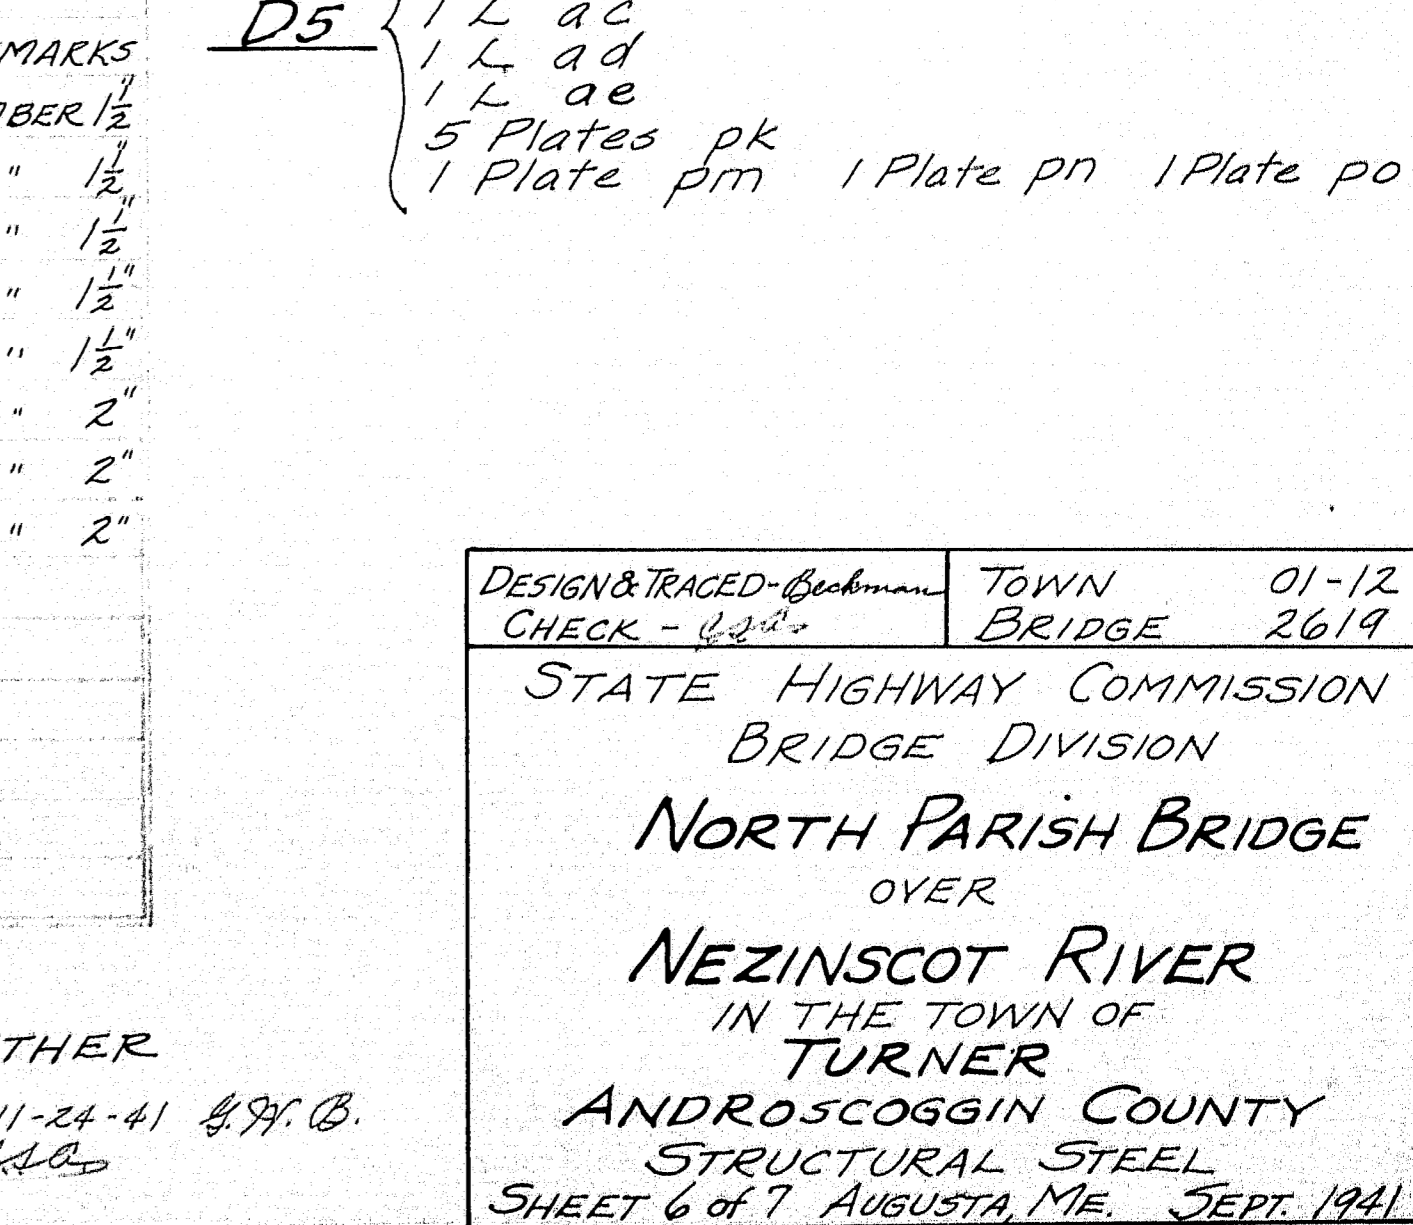 MARKS
OBER 1 1/2"
" 1 1/2"
" 1 1/2"
" 1 1/2"
" 1 1/2"
" 2"
" 2"
" 2"
THER
11-24-41 G.W.B.
D5
1 L ac
1 L ad
1 L ae
5 Plates pk
1 Plate pm 1 Plate pn 1 Plate po
DESIGN & TRACED - Beckman
CHECK -
TOWN 01-12
BRIDGE 2619
STATE HIGHWAY COMMISSION
BRIDGE DIVISION
NORTH PARISH BRIDGE
OVER
NEZINSCOT RIVER
IN THE TOWN OF
TURNER
ANDROSCOGGIN COUNTY
STRUCTURAL STEEL
SHEET 6 of 7 AUGUSTA, ME. SEPT. 1941